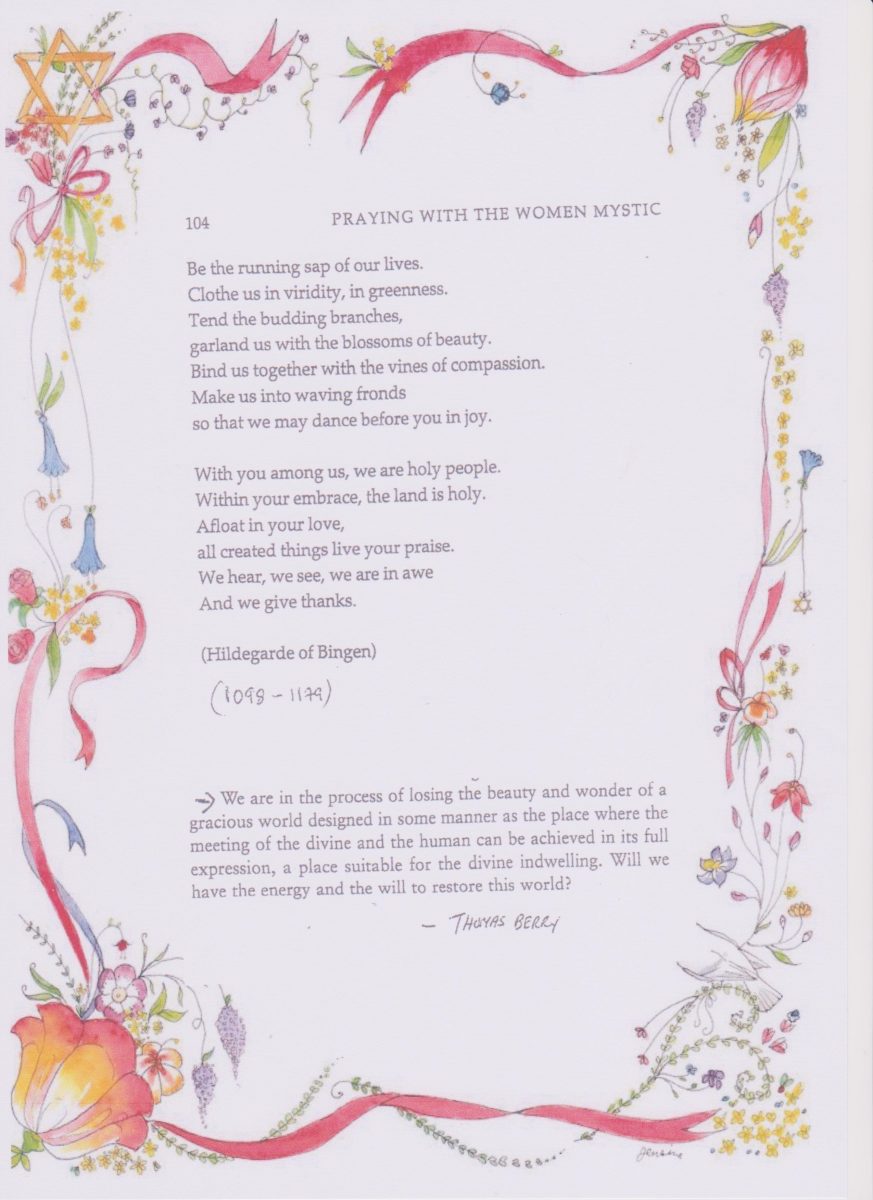 104
PRAYING WITH THE WOMEN MYSTIC
Be the running sap of our lives.
Clothe us in viridity, in greenness.
Tend the budding branches,
garland us with the blossoms of beauty.
Bind us together with the vines of compassion.
Make us into waving fronds
so that we may dance before you in joy.
With you among us, we are holy people.
Within your embrace, the land is holy.
Afloat in your love,
all created things live your praise.
We hear, we see, we are in awe
And we give thanks.
(Hildegarde of Bingen)
(1098 - 1179)
→ We are in the process of losing the beauty and wonder of a
gracious world designed in some manner as the place where the
meeting of the divine and the human can be achieved in its full
expression, a place suitable for the divine indwelling. Will we
have the energy and the will to restore this world?
- THOMAS BERRY